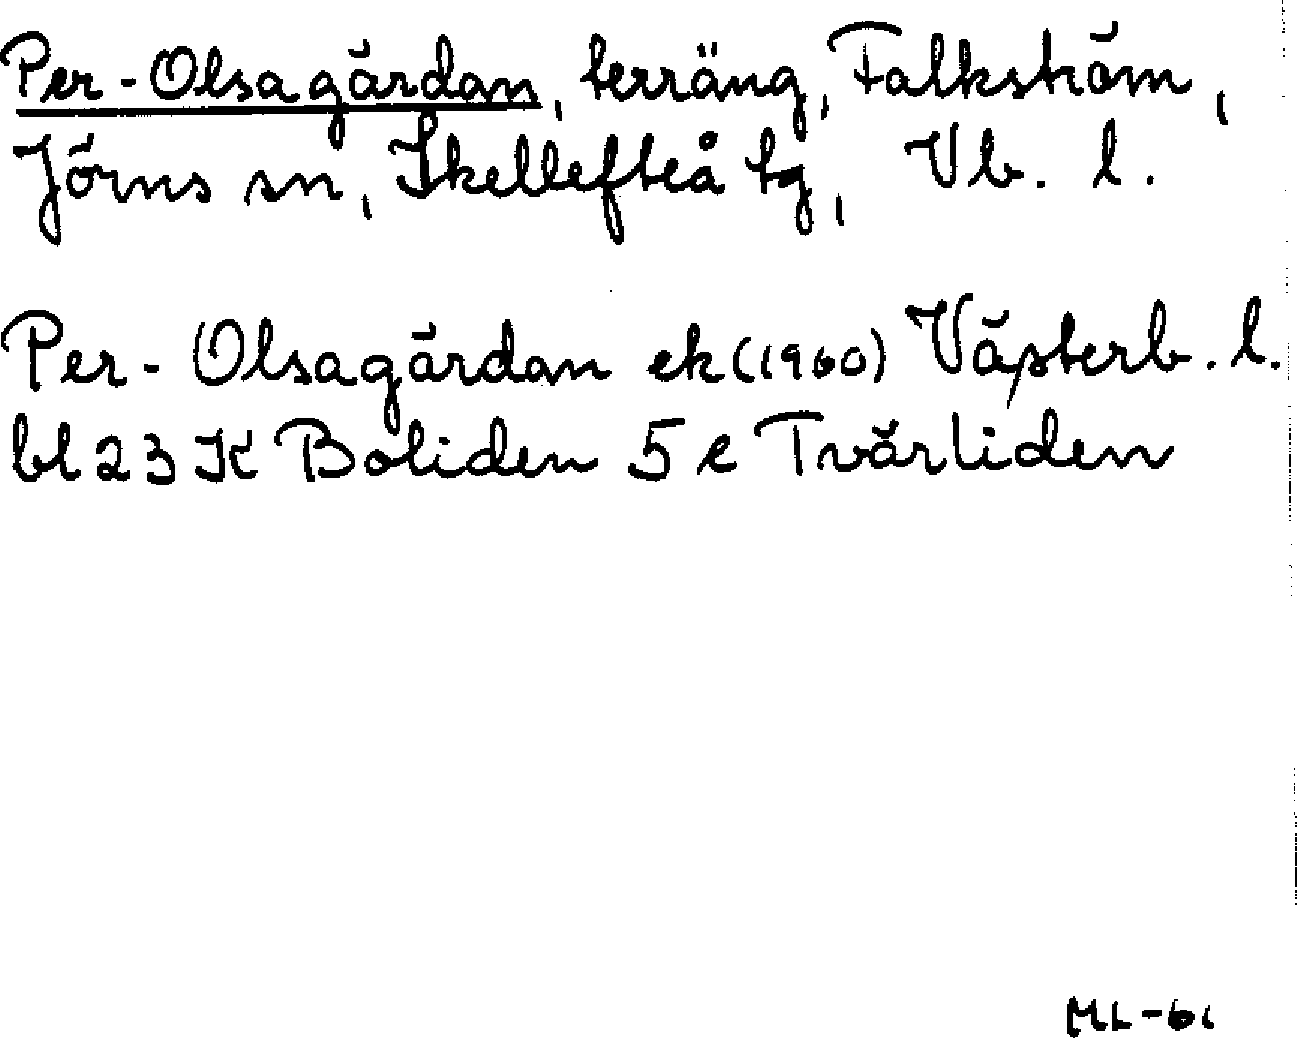 Per-Olsagärdan, terräng, Falkström,
Jörns sn, Skellefteå tg, Vb. l.
Per-Olsagärdan ek (1960) Västerb. l.
bl 23 K Boliden 5 e Tvärliden
ML-61